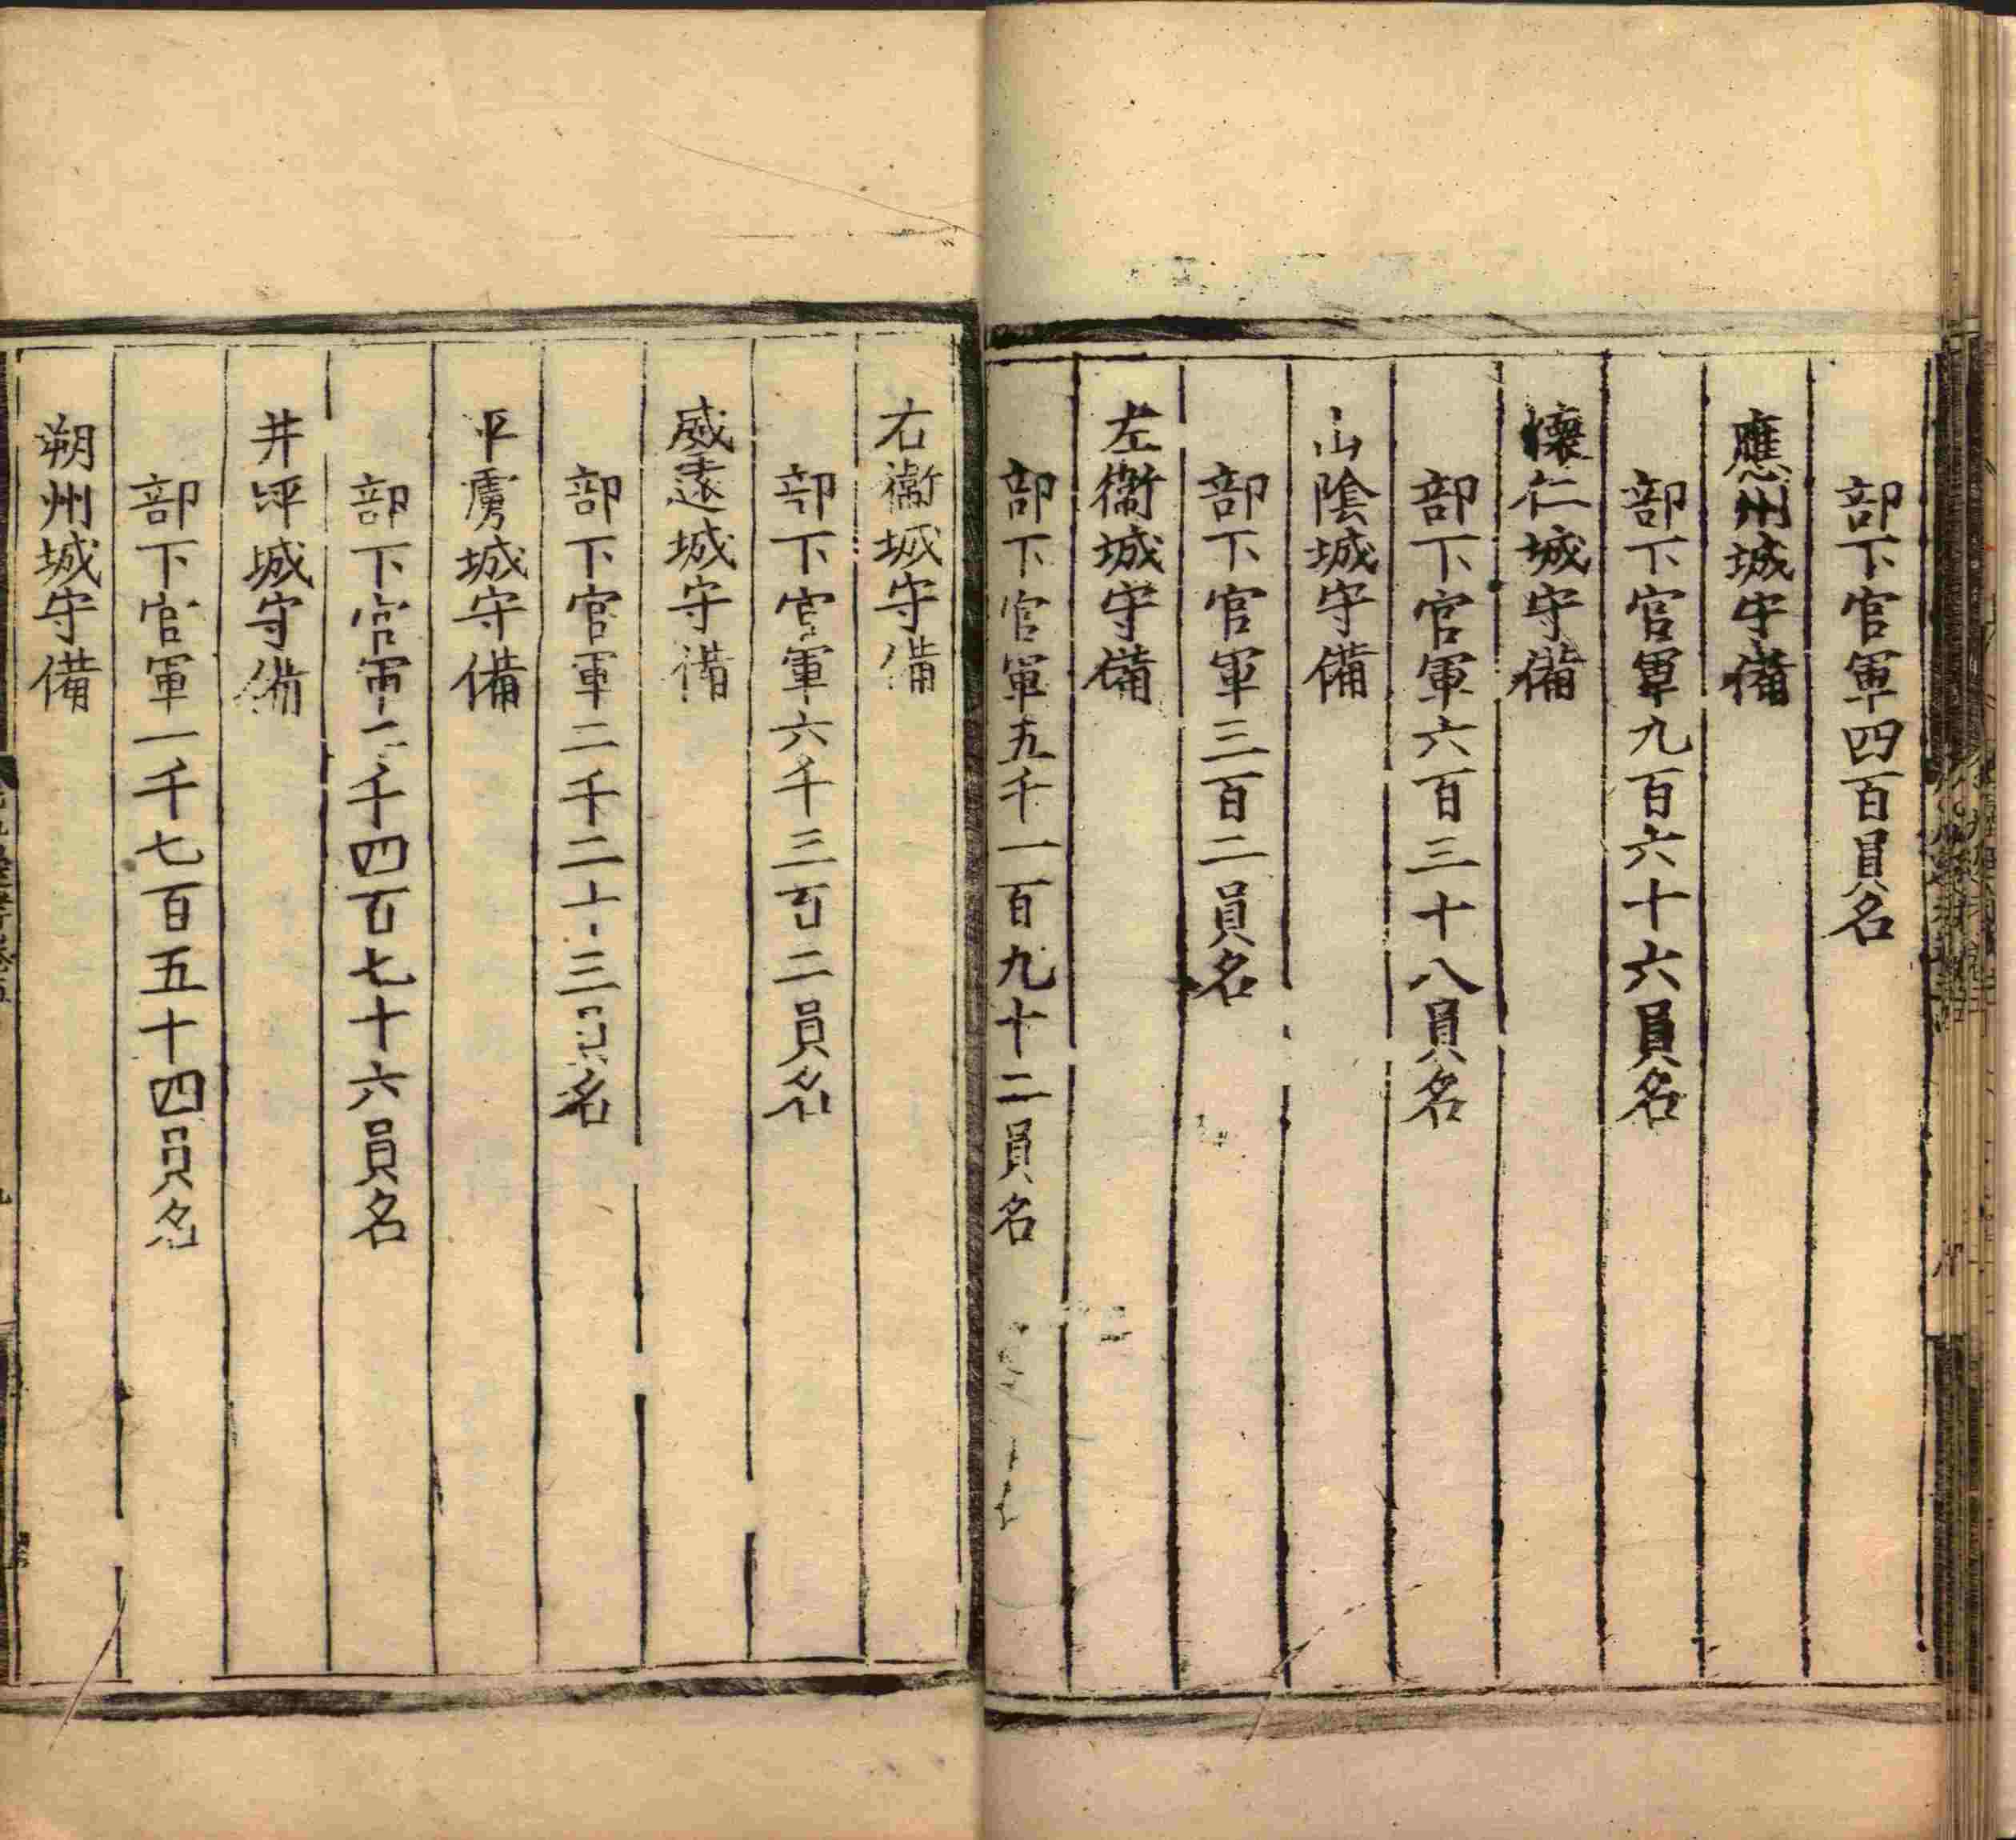 部下官軍四百員名
應州城守備
部下官軍九百六十六員名
懷仁城守備
部下官軍六百三十八員名
山陰城守備
部下官軍三百二員名
左衞城守備
部下官軍五千一百九十二員名
右衞城守備
部下官軍六千三百二員名
威遠城守備
部下官軍二千二十三員名
平虜城守備
部下官軍二千四百七十六員名
井坪城守備
部下官軍一千七百五十四員名
朔州城守備